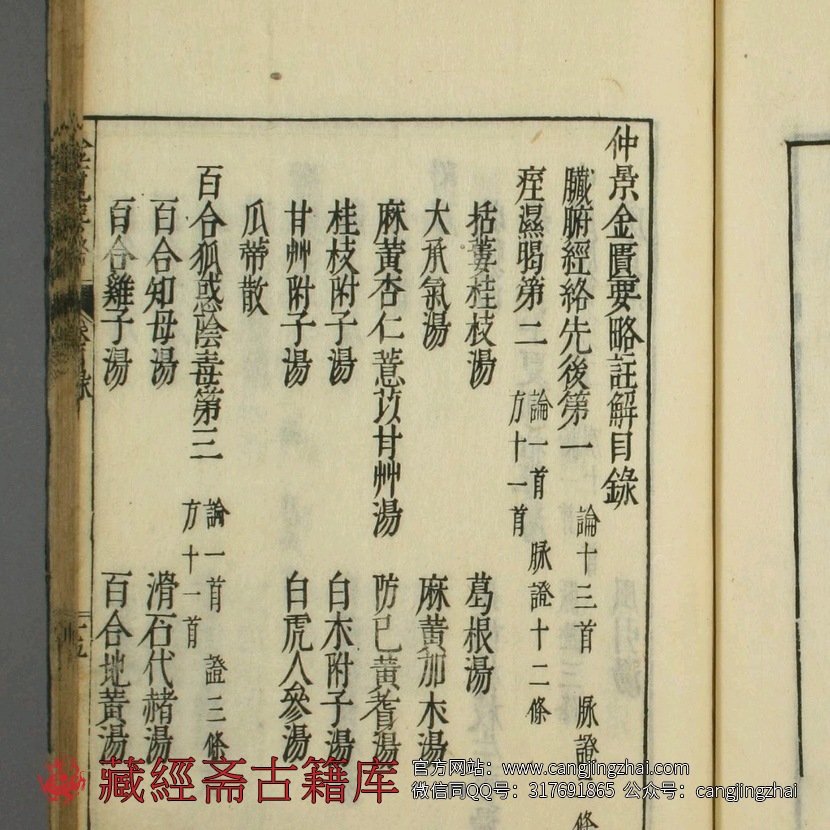 仲景金匱要略註解目錄
臟腑經絡先後第一 論十三首 脉證 條
痓濕暍第二 論一首 脉證十二條 方十一首
括蔞桂枝湯 葛根湯
大承氣湯 麻黃加朮湯
麻黃杏仁薏苡甘艸湯 防已黃耆湯
桂枝附子湯 白朮附子湯
甘艸附子湯 白虎人參湯
瓜蒂散
百合狐惑陰毒第三 論一首 證三條 方十一首
百合知母湯 滑石代赭湯
百合雞子湯 百合地黃湯
藏經斋古籍库
官方网站：www.cangjingzhai.com
微信同QQ号：317691865 公众号：cangjingzhai